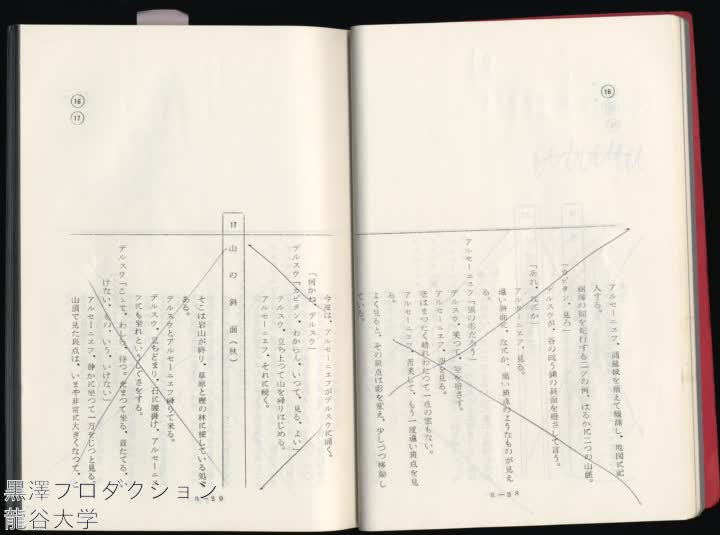 ⑯
アルセーニエフ、測量板を据えて縮図し、地図に記
入する。
樹海の間を蛇行する二ツの河、はるかに二つの山脈。
「カピタン、見ろ」
デルスウが、谷の向う側の斜面を指さして言う。
「あれ、なにか」
アルセーニエフ、見る。
遠い斜面に、なにか、黒い斑点のようなものが見え
る。
アルセーニエフ「雲の影だろう」
デルスウ、笑つて、空を指さす。
アルセーニエフ、空を見る。
空はまつたく晴れわたつて一点の雲もない。
アルセーニエフ、苦笑して、もう一度遠い斑点を見
る。
よく見ると、その斑点は形を変え、少しづつ移動し
ている。
a—28
⑯
⑰
今度は、アルセーニエフがデルスウに聞く。
「何かね、デルスウ」
デルスウ「カピタン、わからん。いつて、見る、よい」
デルスウ、立ち上つて山を降りはじめる。
アルセーニエフ、それに続く。
17 山の斜面(秋)
そこは岩山が終り、草原と樫の林に接している処で
ある。
デルスウとアルセーニエフ降りて来る。
デルスウ、立ちどまり、石に腰掛け、アルセーニエ
フにも坐れというしぐさをする。
デルスウ「こゝで、わしら、待つ。だまつて坐る。音たてる、い
けない。もの、いう、いけない」
アルセーニエフ、静かに坐つて一方をじつと見る。
山頂で見た斑点は、いまや非常に大きくなつて、こ
a—29
黒澤プロダクション
龍谷大学